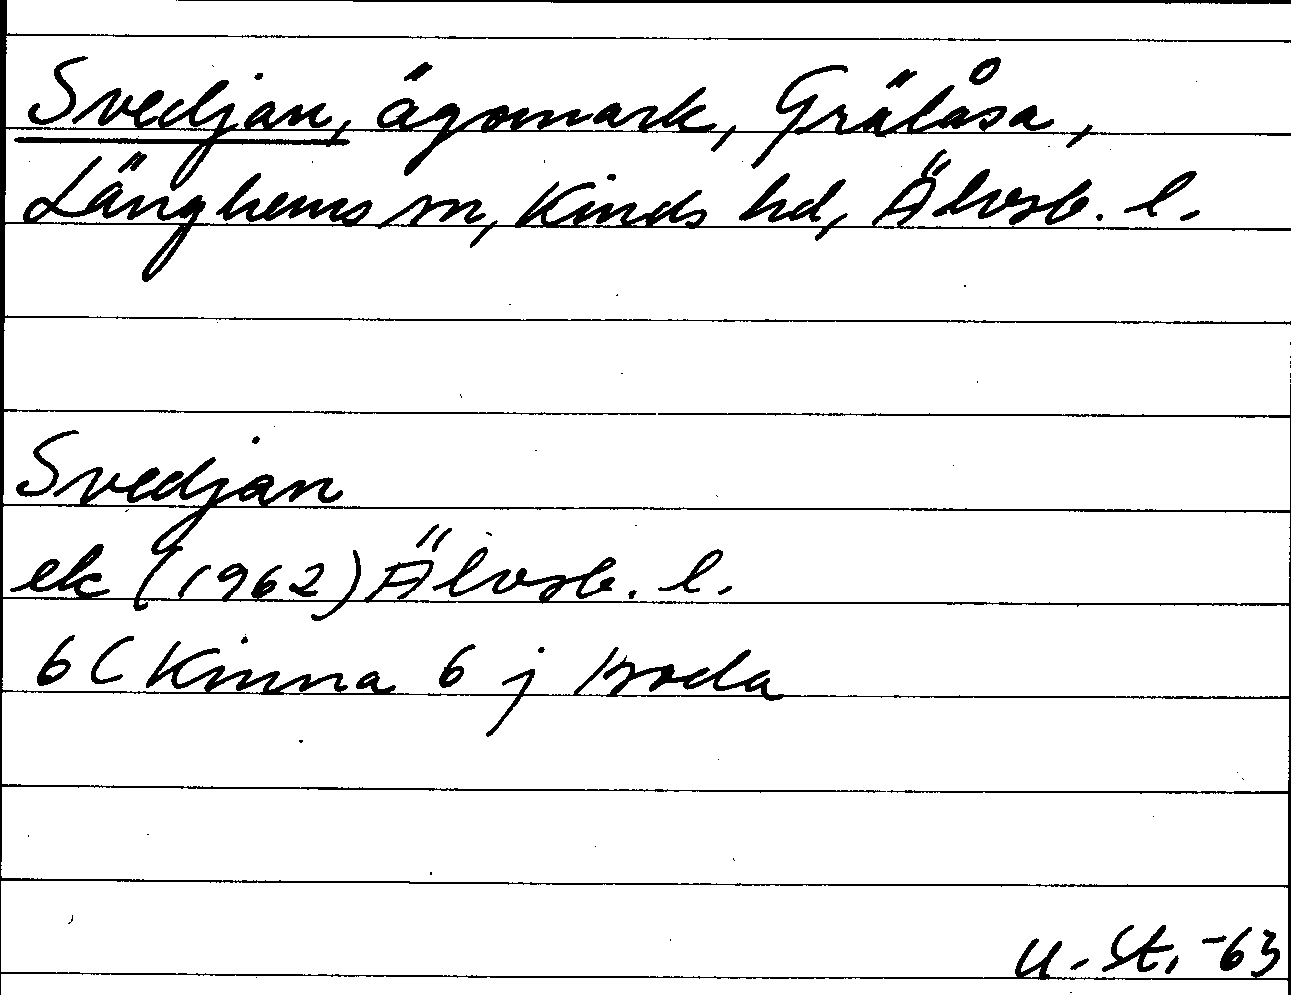 Svedjan, ägomark, Grälåsa,
Länghems sn, Kinds hd, Älvsb. l.
Svedjan
ek (1962) Älvsb. l.
6 C Kinna 6 j Broda
U. St. -63